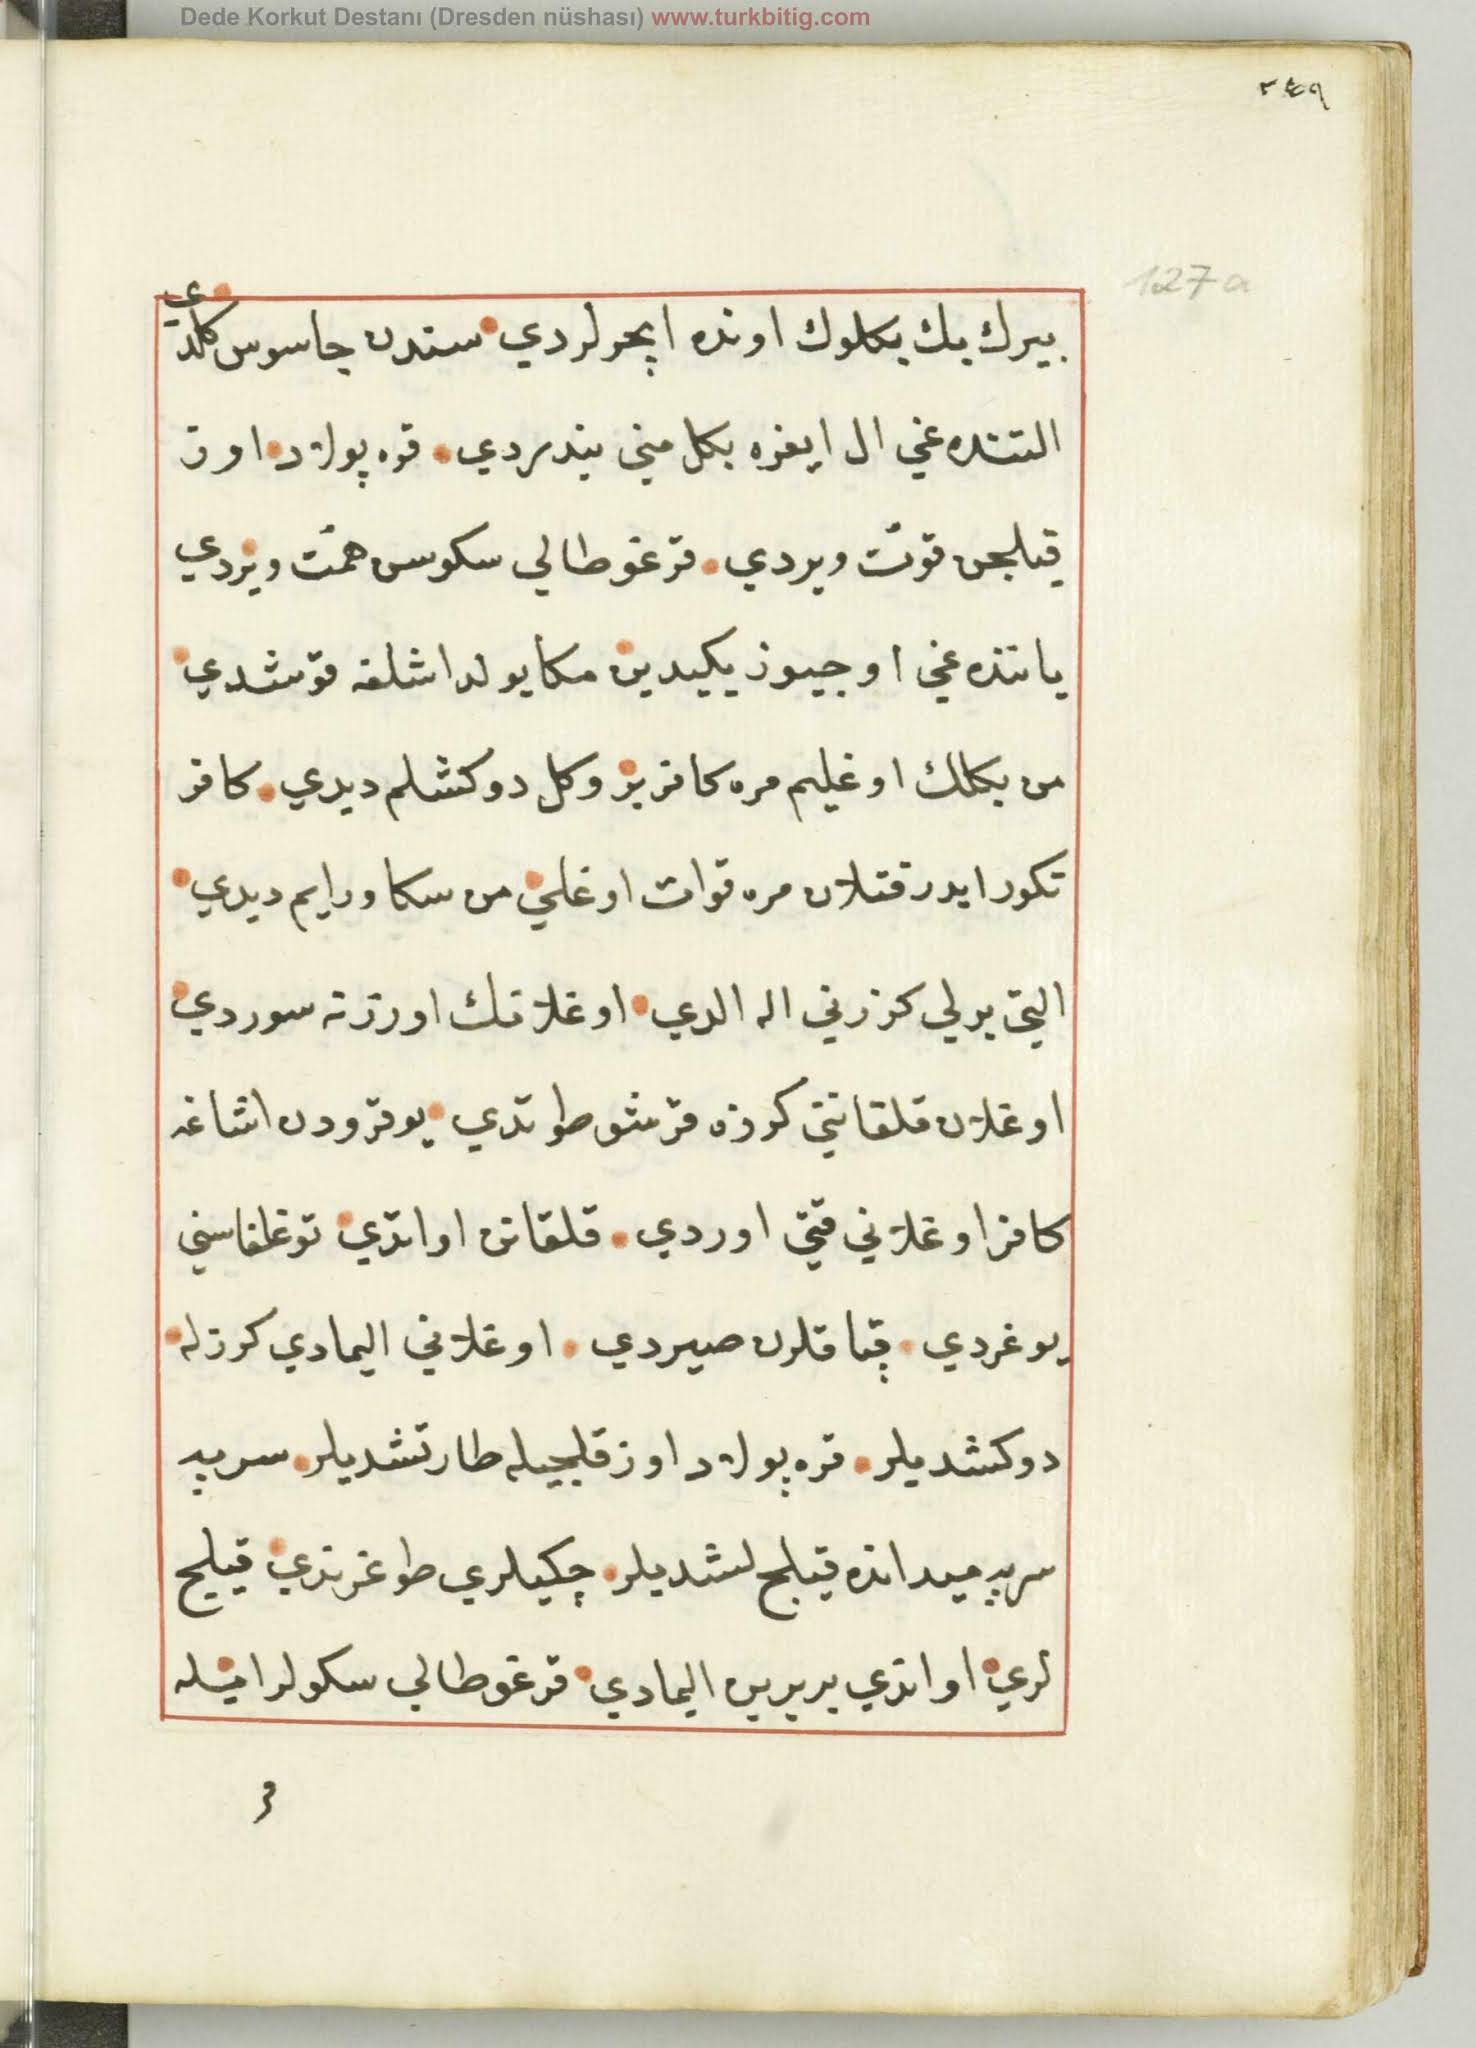 Dede Korkut Destanı (Dresden nüshası) www.turkbitig.com
۲٤۹
127a
بيرك بك بكلوك اونده ايچرلردي سندن جاسوس كلدي
التنده غي ال ايغره بكل منى بندردي قره پولاد اوز
قيلجن قوت ويردي قرغو طالي سكوسن همت ويردي
يانندہ غي اوجيوز يكيدين مكا يولداشلغه قوشدي
من بكلك اوغليم مره كافر بز وكل دوكشلم ديدي كافر
تكور ايدر قتلان مره قوات اوغلي من سكا ورايم ديدي
التي برلي كرزني اله الدي اوغلانك اوزرنه سوردي
اوغلان قلقانني كرزه قرشو طوتدي يوقرودن اشاغه
كافر اوغلاني قتي اوردي قلقانن اواتدي توغلقاسني
يوغردي قپاقلرن صيردي اوغلاني اليمادي كرزله
دوكشديلر قره پولاد اوز قلجيله طارتشديلر سرپه
سرپه ميدانده قيلج لشديلر چكيلري طوغرندي قيليج
لري اواندي بربرين اليمادي قرغو طالي سكولر ايله
قر